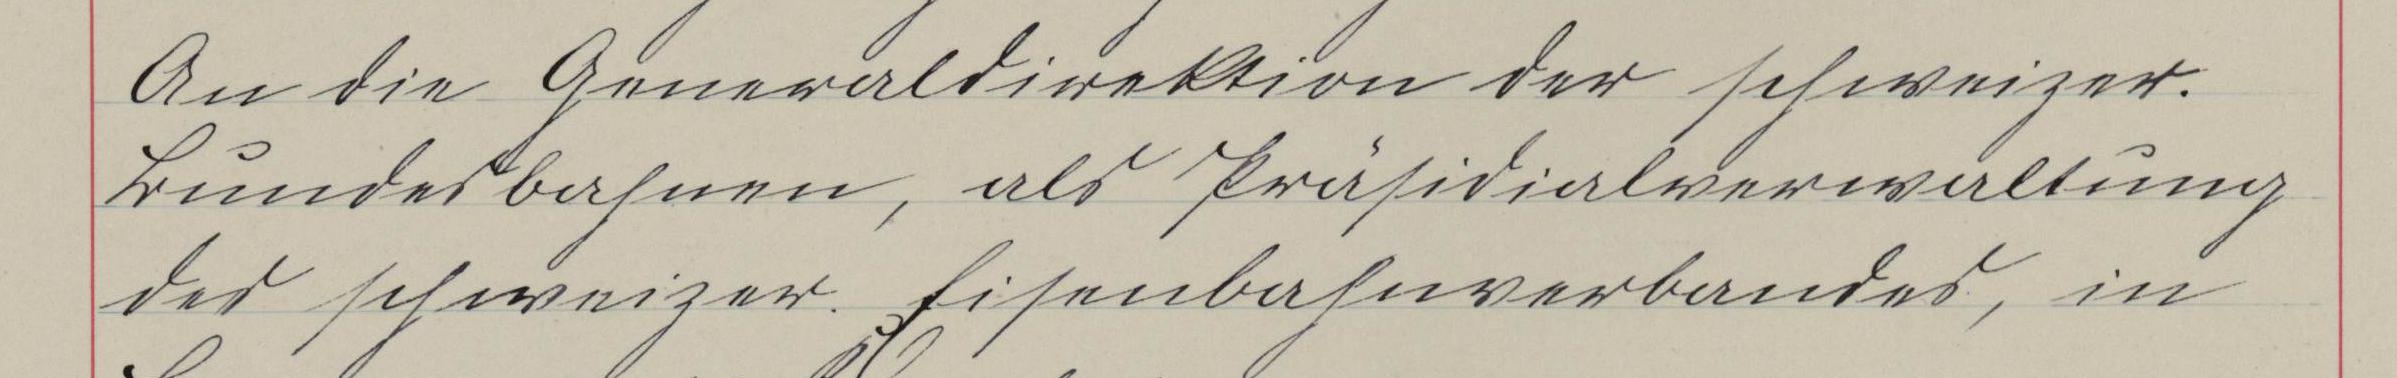 An die Generaldirektion der schweizer.
Bundesbahnen, als Präsidialverwaltung
des schweizer. Eisenbahnverbandes, in